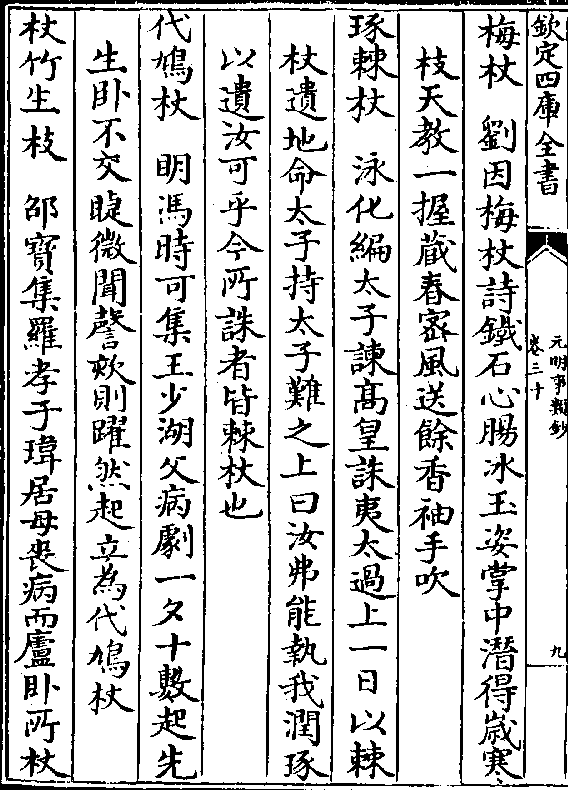 欽定四庫全書
元明事類鈔
卷三十
九
梅杖　劉因梅杖詩鐵石心腸冰玉姿掌中潛得歲寒
枝天教一握蔵春宻風送餘香袖手吹
琢棘杖　泳化編太子諫髙皇誅夷太過上一日以棘
杖遺地命太子持太子難之上曰汝弗能執我潤琢
以遺汝可乎今所誅者皆棘杖也
代鳩杖　明馮時可集王少湖父病劇一夕十數起先
生卧不交睫微聞謦欬則躍然起立為代鳩杖
杖竹生枝　邵寳集羅孝子瑋居母喪病而廬卧所杖